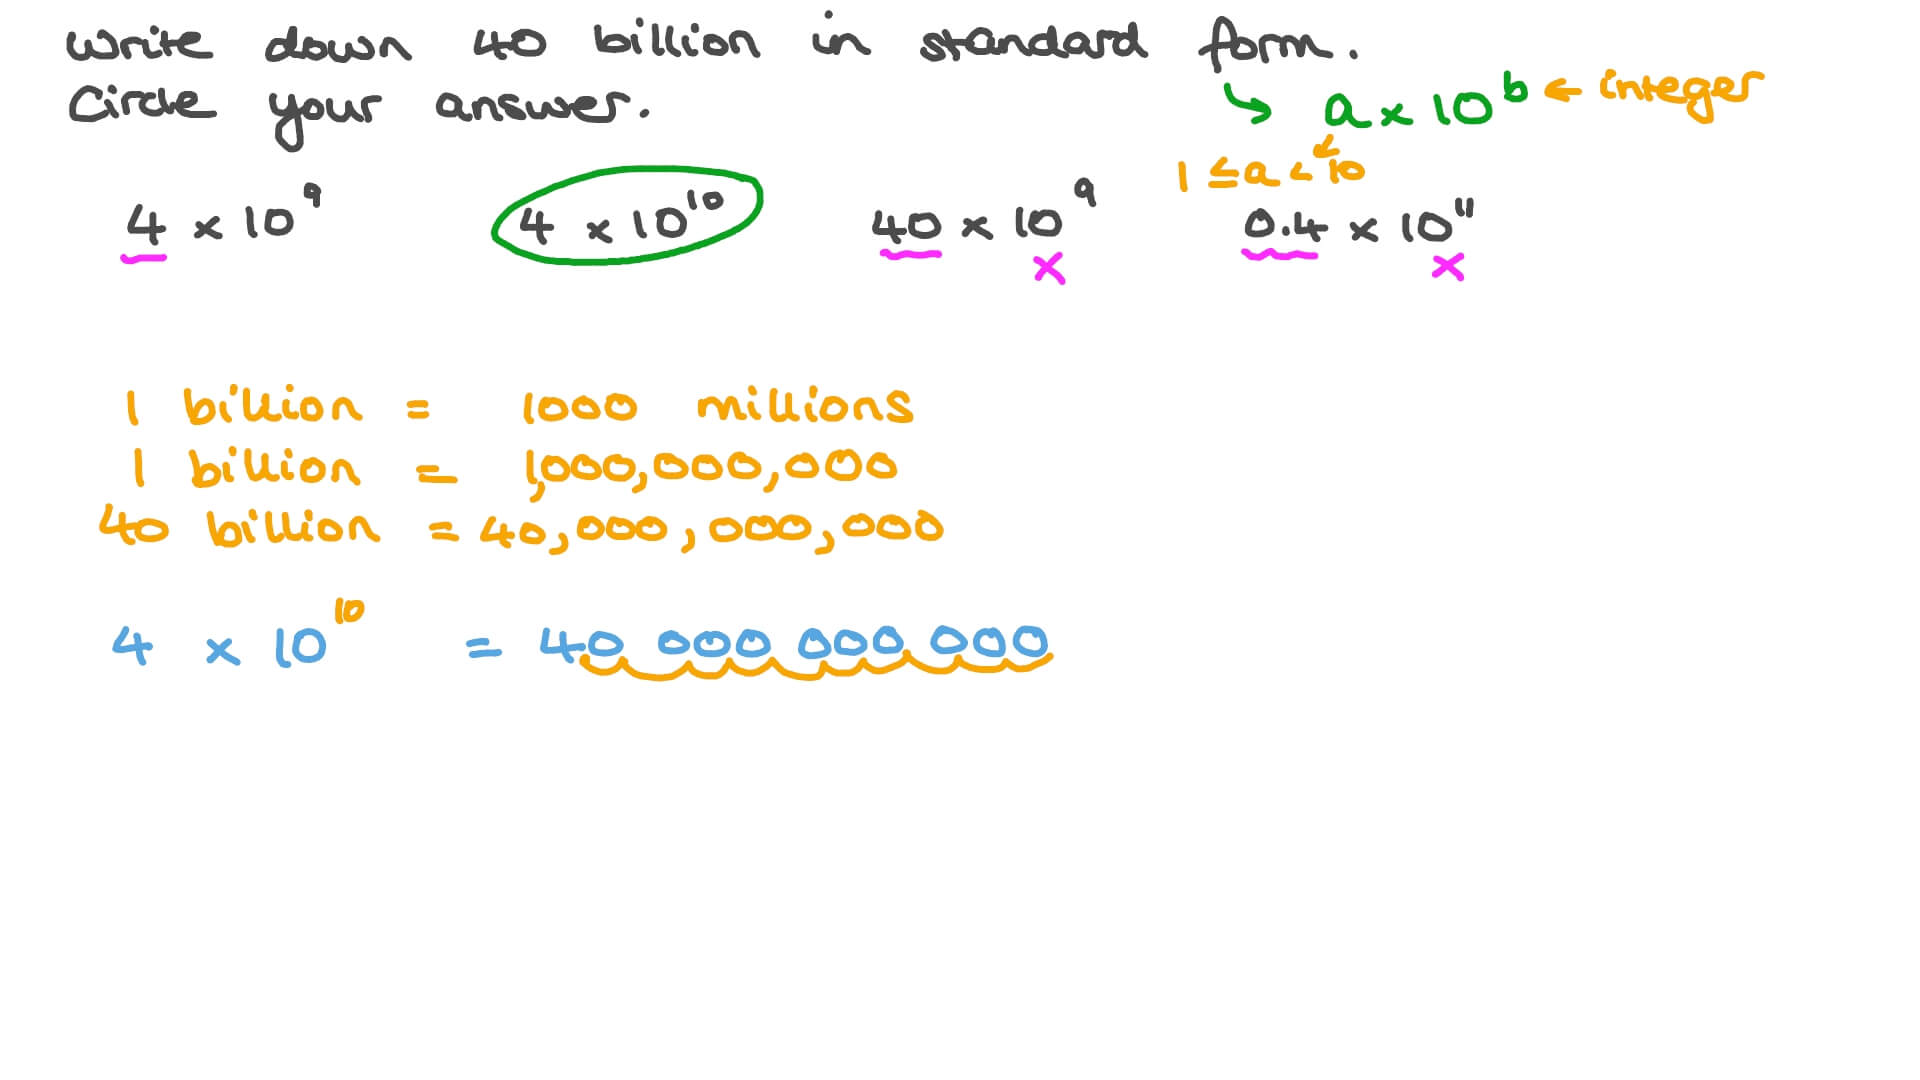 Write down 40 billion in standard form.
Circle your answer.
a × 10^b ← integer
1 ≤ a < 10
4 × 10^9 4 × 10^10 40 × 10^9 0.4 × 10^11
× ×
1 billion = 1000 millions
1 billion = 1,000,000,000
40 billion = 40,000,000,000
4 × 10^10 = 40 000 000 000